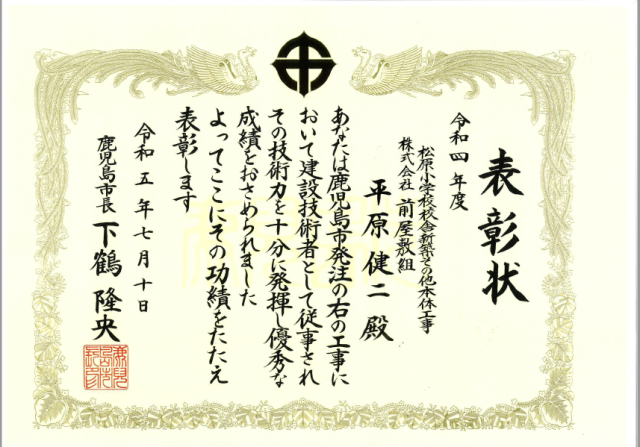 表彰状
令和四年度
松原小学校校舎新築その他本体工事
株式会社 前屋敷組
平原健二 殿
あなたは鹿児島市発注の右の工事に
おいて建設技術者として従事され
その技術力を十分に発揮し優秀な
成績をおさめられました
よってここにその功績をたたえ
表彰します
令和五年七月十日
鹿児島市長 下鶴 隆央